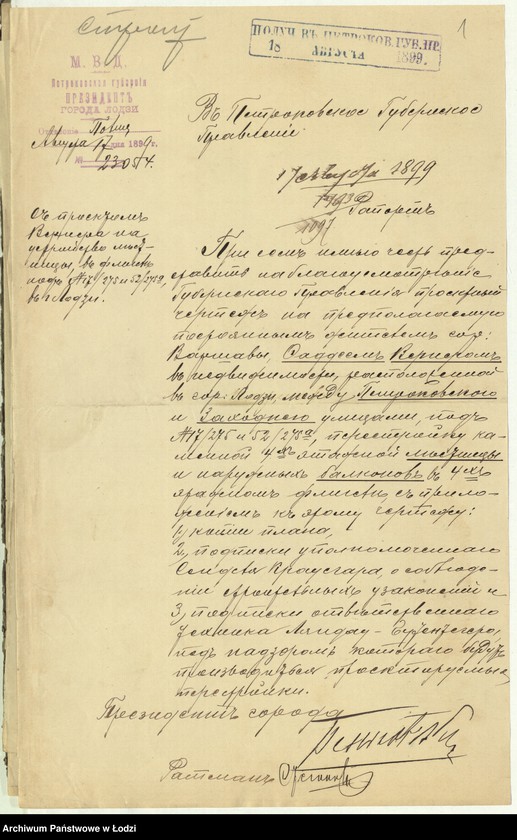 1
ПОЛУЧ. ВЪ ПЕТРОКОВ. ГУБ. ПР.
18 АВГУСТА 1899.
М. В. Д.
Петроковской губерніи
ПРЕЗИДЕНТЪ
ГОРОДА ЛОДЗИ
Августа 17 дня 1899 г.
№
Въ Петроковское Губернское
Правленіе
17 Августа 1899
Рапортъ
Съ проектомъ
Вернера на
устройство лѣст-
ницы въ флигелѣ
подъ №17/275 и 52/275а,
въ г. Лодзи.
При семъ имѣю честь пред-
ставить на благоусмотрѣніе
Губернскаго Правленія проектный
чертежъ на предполагаемую
постояннымъ жителемъ гор:
Варшавы, Саддеемъ Вернеромъ
въ недвижимости, расположенной
въ гор: Лодзи, между Петроковскою
и Заходнею улицами, подъ
№17/275 и 52/275а, перестройку ка-
менной 4хъ этажной лѣстницы
и наружныхъ балконовъ въ 4хъ
этажномъ флигелѣ, съ прило-
женіемъ къ этому чертежу:
1, копіи плана,
2, подписки уполномоченнаго
Краусгара, о соблюде-
ніи строительныхъ узаконеній и
3, подписки отвѣтственнаго
техника Ляндау-Гутентегера,
подъ надзоромъ котораго будутъ
производиться проектируемыя
перестройки.
Президентъ города
Ратманъ
Archiwum Państwowe w Łodzi